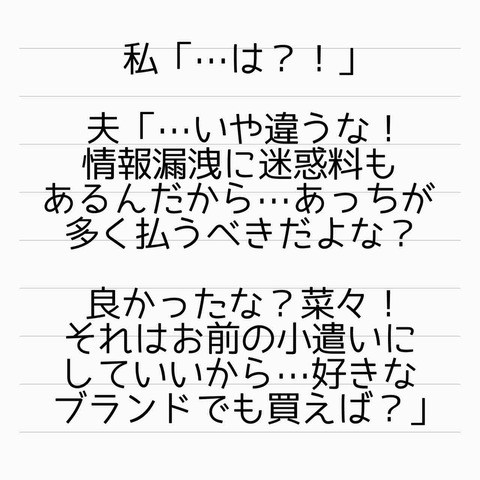 私「…は？！」
夫「…いや違うな！
情報漏洩に迷惑料も
あるんだから…あっちが
多く払うべきだよな？
良かったな？菜々！
それはお前の小遣いに
していいから…好きな
ブランドでも買えば？」